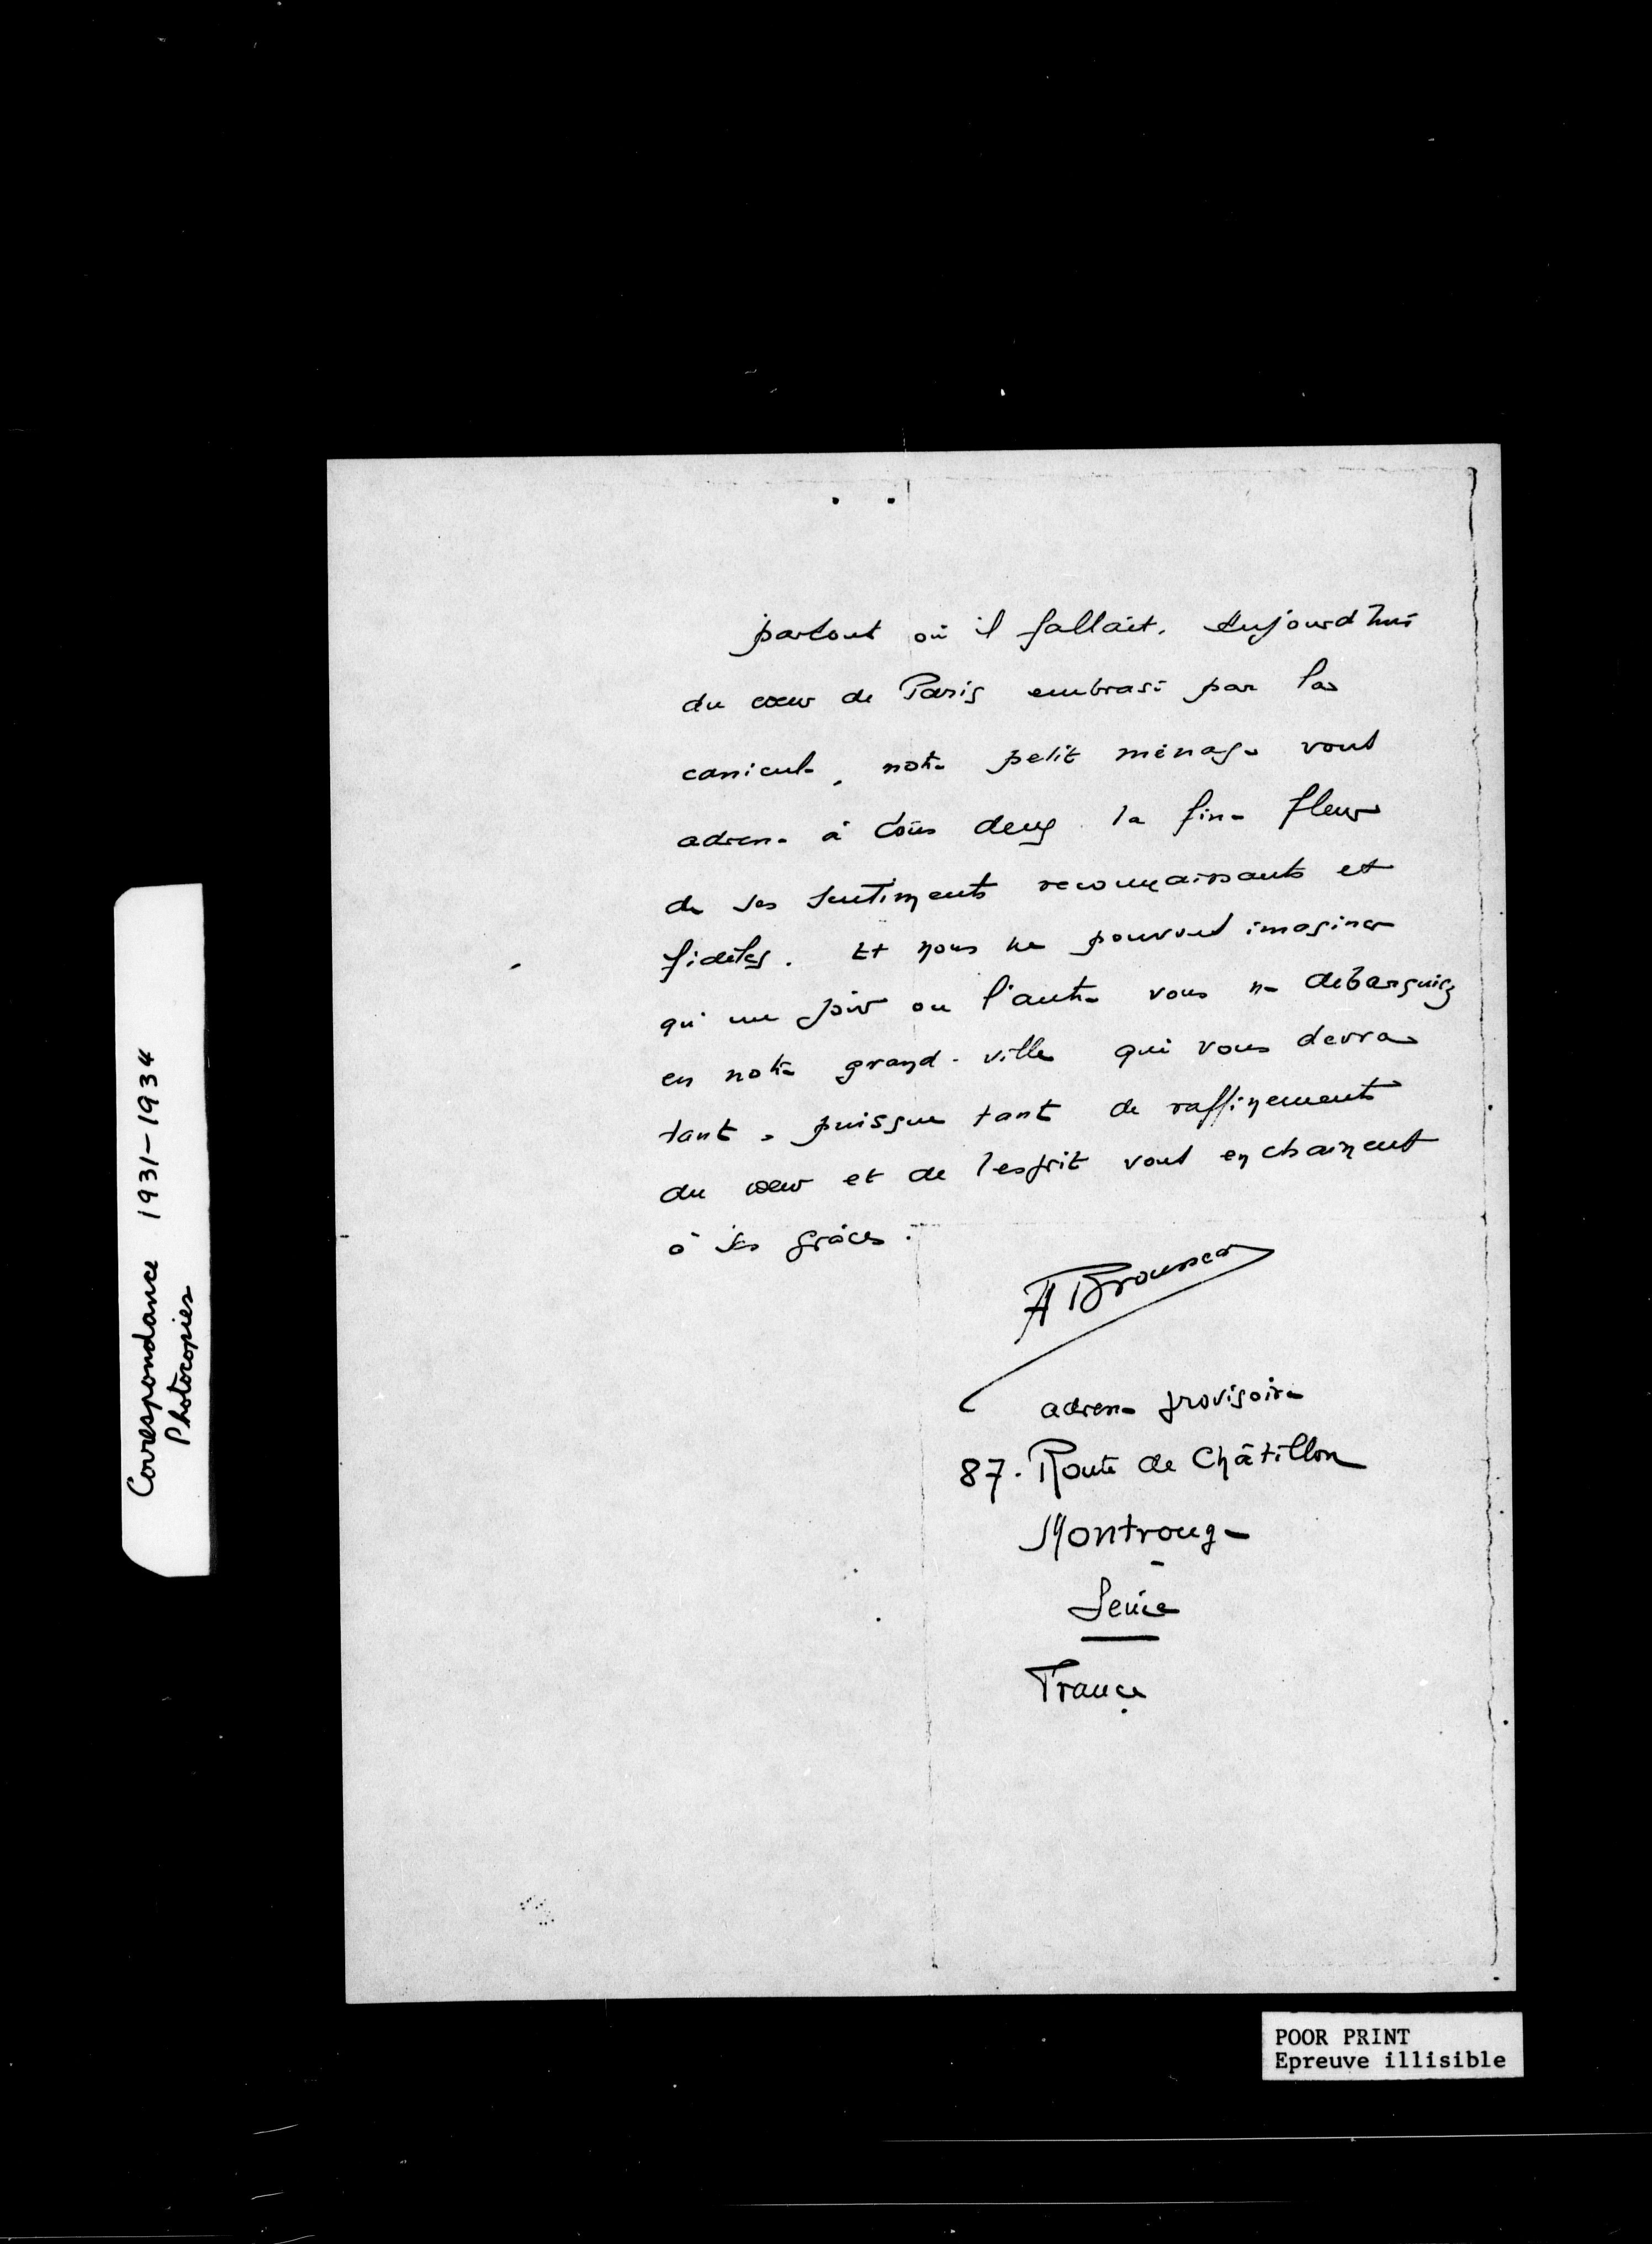 partout où il fallait. Aujourd'hui
du cœur de Paris embrasé par la
canicule, notre petit ménage vous
adresse à tous deux la fine fleur
de ses sentiments reconnaissants et
fidèles. Et nous ne pouvons imaginer
qu'un jour ou l'autre vous ne débarquiez
en notre grand-ville qui vous devra
tant, puisque tant de raffinements
du cœur et de l'esprit vous enchaînent
à ses grâces.
A Brousseau
adresse provisoire
87. Route de Châtillon
Montrouge
Seine
France
Correspondance 1931-1934
Photocopies
POOR PRINT
Epreuve illisible